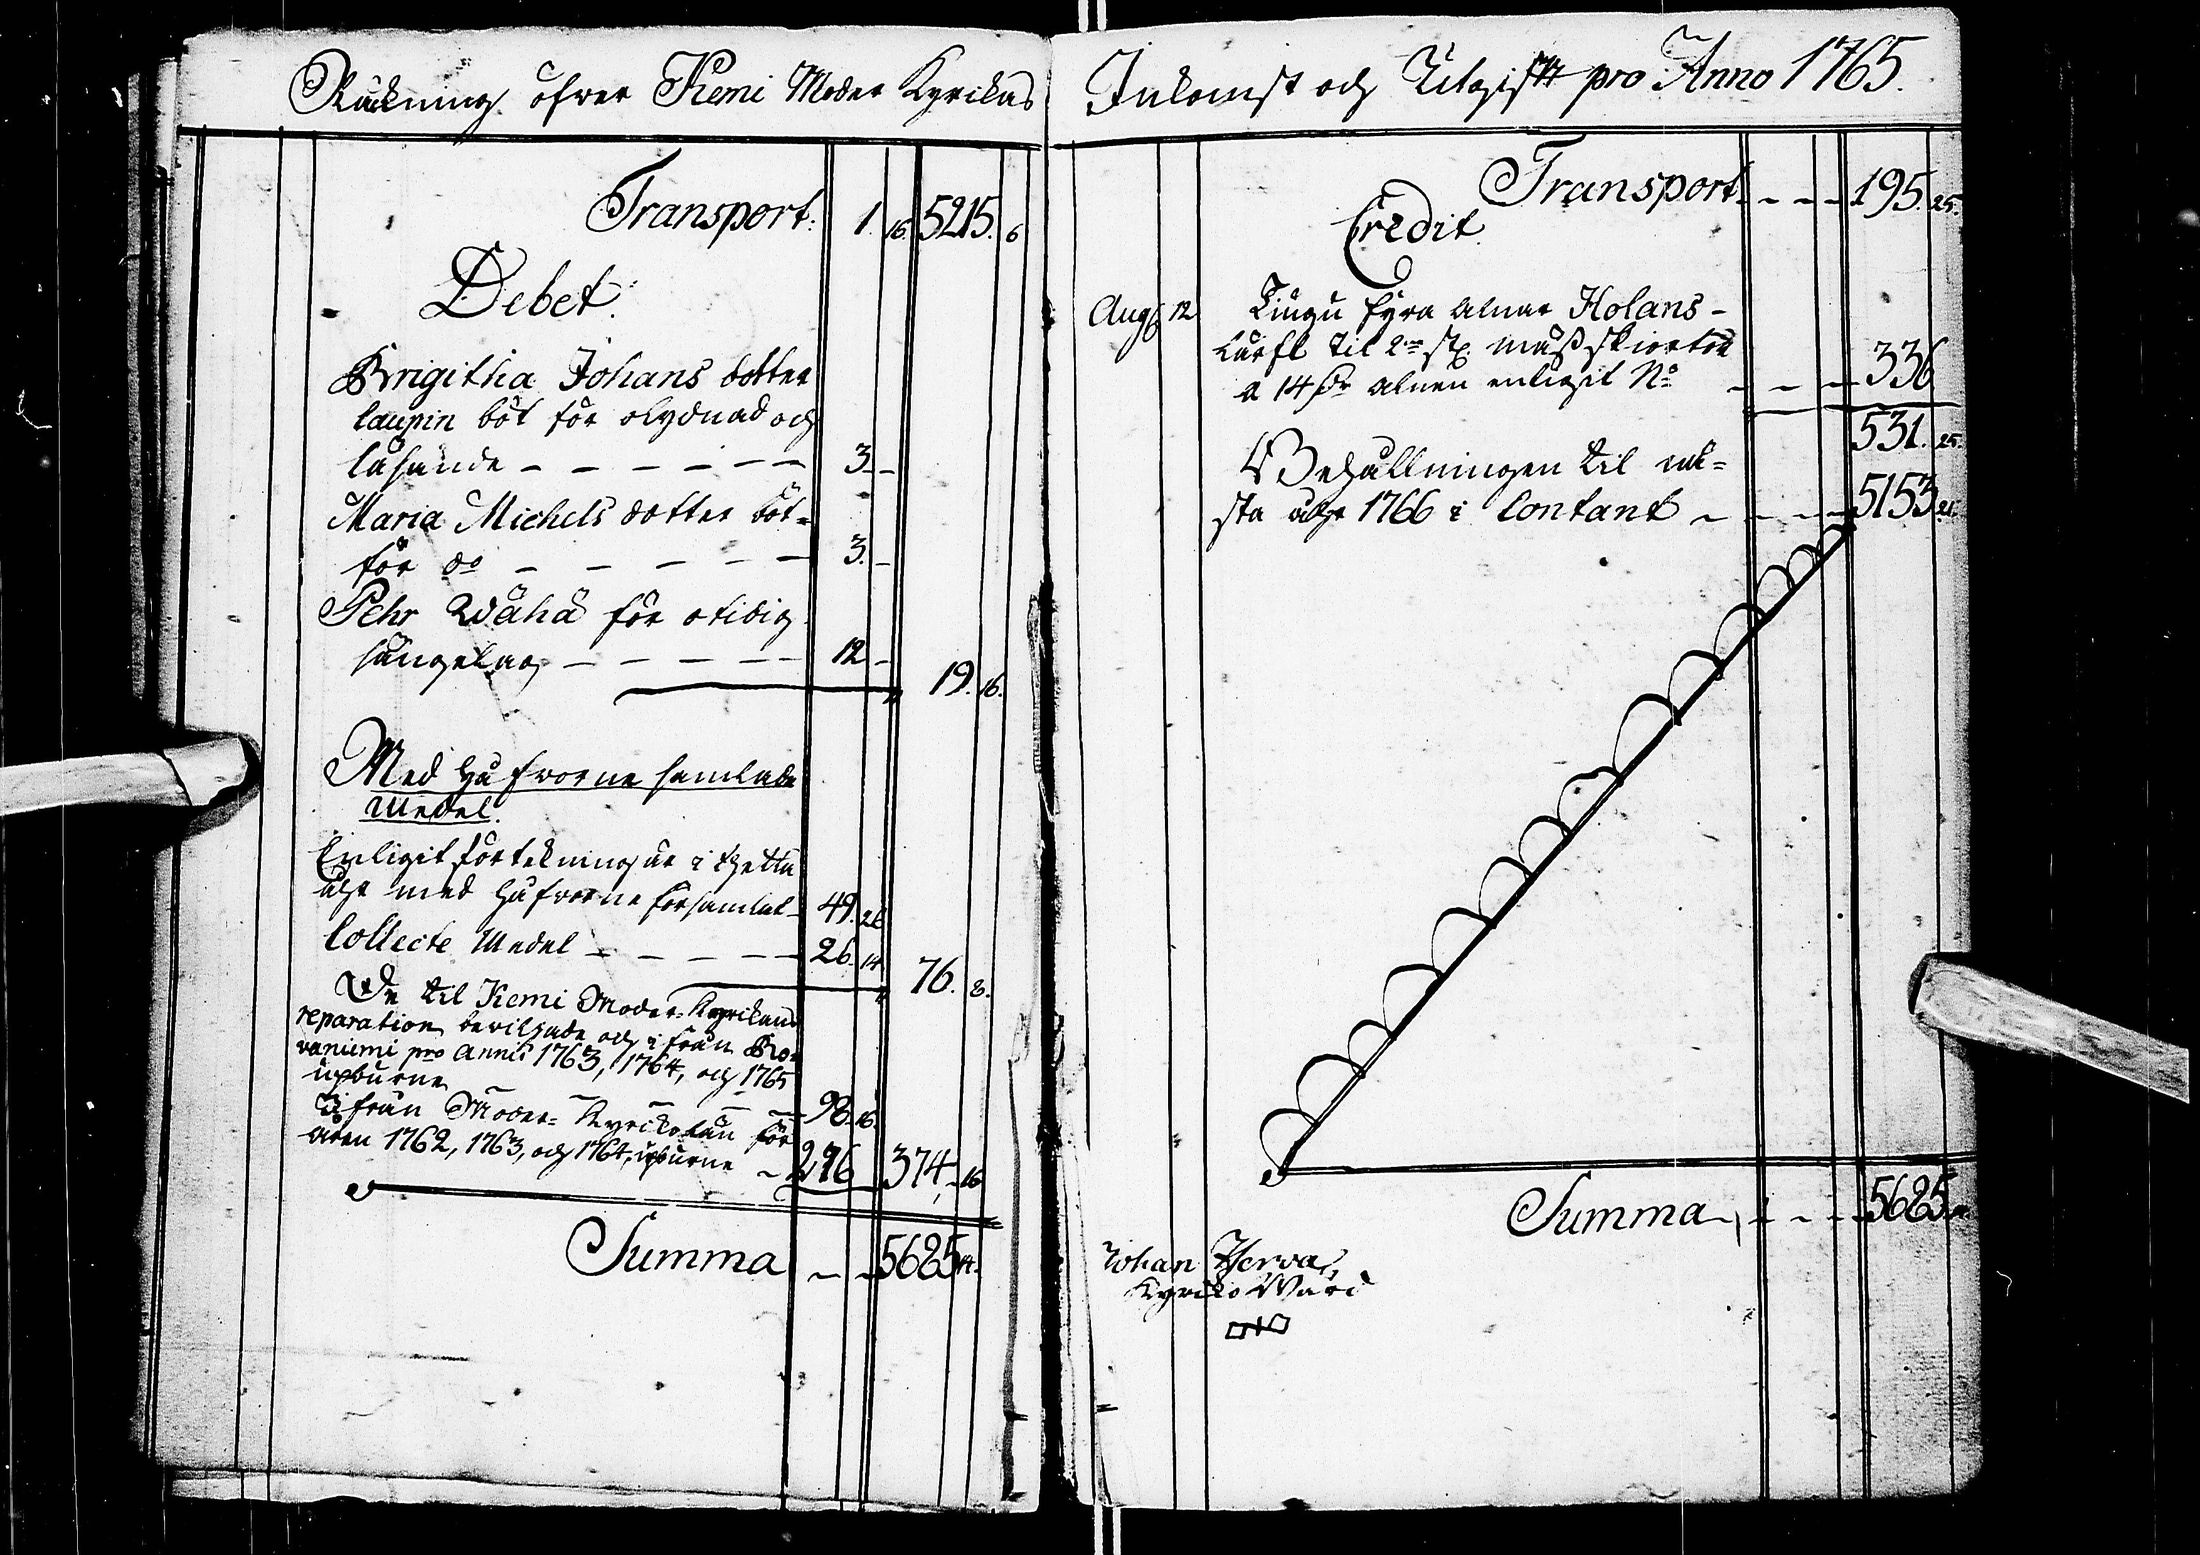 Räckning öfver Kemi Moder Kyrckas
Transport. 1. 16. 5215. 6
Debet.
Brigitha Johans dotter
laupin böt för olydnad och
läsande - - - - - - 3. -
Maria Michels dotter böt-
för do - - - - - 3. -
Pehr Wähä för otidig
sängelag - - - - - 12 -
19. 16.
Med Håfvorne samlade
Medel.
Enligit förtekningar i thetta
åhr med Håfvorne församlat - 49. 26
Collecte Medel - - - - - 26. 14
76. 8.
De til Kemi Moder-Kyrckans
reparation beviljade och ifrån Ro-
vaniemi pro Annis 1763, 1764, och 1765
upburne - - - - 98. 16
Ifrån Moder-Kyrckolän för
åren 1762, 1763, och 1764, upburne - 276 374, - 16
Summa - - 5685 14.
Inkomst och Utgift pro Anno 1765.
Transport. - - - 195. 25.
Credit.
Aug 12 Tiugu fyra alnar Holans-
Lärft til 2ne st. mässskiortor
a 14 dr alnen enligit No - - - 336
531. 25.
Behållningen til nä-
sta åhr 1766 i Contant - - - 5153. 21.
Summa - - - - 5685
Johan Herva,
Kyrcko Wärd